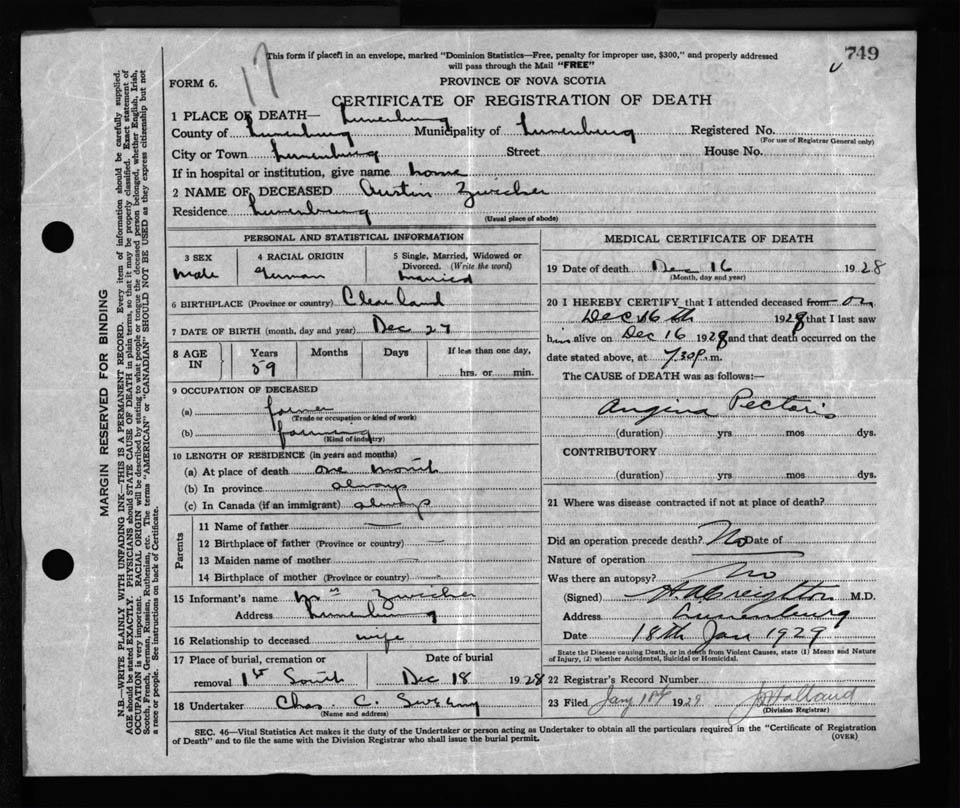 749
17
This form if placed in an envelope, marked "Dominion Statistics—Free, penalty for improper use, $300," and properly addressed
will pass through the Mail "FREE"
FORM 6.
PROVINCE OF NOVA SCOTIA
CERTIFICATE OF REGISTRATION OF DEATH
1 PLACE OF DEATH— Lunenburg
County of Lunenburg Municipality of Lunenburg Registered No.
(For use of Registrar General only)
City or Town Lunenburg Street House No.
If in hospital or institution, give name home
2 NAME OF DECEASED Austin Zwicker
Residence Lunenburg
(Usual place of abode)
PERSONAL AND STATISTICAL INFORMATION
3 SEX 4 RACIAL ORIGIN 5 Single, Married, Widowed or
Divorced. (Write the word)
Male German Married
6 BIRTHPLACE (Province or country) Clearland
7 DATE OF BIRTH (month, day and year) Dec 27
8 AGE IN Years Months Days If less than one day,
59 hrs. or min.
9 OCCUPATION OF DECEASED
(a) farmer
(Trade or occupation or kind of work)
(b) farming
(Kind of industry)
10 LENGTH OF RESIDENCE (in years and months)
(a) At place of death one month
(b) In province always
(c) In Canada (if an immigrant) always
Parents
11 Name of father —
12 Birthplace of father (Province or country) —
13 Maiden name of mother —
14 Birthplace of mother (Province or country) —
15 Informant's name Mrs Zwicker
Address Lunenburg
16 Relationship to deceased wife
17 Place of burial, cremation or Date of burial
removal 1st South Dec 18 1928
18 Undertaker Chas. C.
(Name and address)
MEDICAL CERTIFICATE OF DEATH
19 Date of death Dec 16 1928
(Month, day and year)
20 I HEREBY CERTIFY that I attended deceased from on
Dec 16th 1928 that I last saw
him alive on Dec 16 1928 and that death occurred on the
date stated above, at 7.30 p.m.
The CAUSE of DEATH was as follows:—
Angina Pectoris
(duration) yrs mos dys.
CONTRIBUTORY
(duration) yrs mos dys.
21 Where was disease contracted if not at place of death?
Did an operation precede death? No Date of
Nature of operation
Was there an autopsy? No
(Signed) HA Creighton M.D.
Address Lunenburg
Date 18th Jan 1929
State the Disease causing Death, or in death from Violent Causes, state (1) Means and Nature
of Injury, (2) whether Accidental, Suicidal or Homicidal.
22 Registrar's Record Number
23 Filed Jany 1929 Holland
(Division Registrar)
SEC. 46—Vital Statistics Act makes it the duty of the Undertaker or person acting as Undertaker to obtain all the particulars required in the "Certificate of Registration
of Death" and to file the same with the Division Registrar who shall issue the burial permit.
(OVER)
MARGIN RESERVED FOR BINDING
N.B.—WRITE PLAINLY WITH UNFADING INK—THIS IS A PERMANENT RECORD. Every item of information should be carefully supplied.
AGE should be stated EXACTLY. PHYSICIANS should STATE CAUSE OF DEATH in plain terms, so that it may be properly classified. Exact statement of
OCCUPATION is very important. RACIAL ORIGIN will be described by stating to what people or tongue the deceased person belonged, whether English, Irish,
Scotch, French, German, Russian, Ruthenian, etc. The terms "AMERICAN" or "CANADIAN" SHOULD NOT BE USED as they express citizenship but not
a race or people. See instructions on back of Certificate.